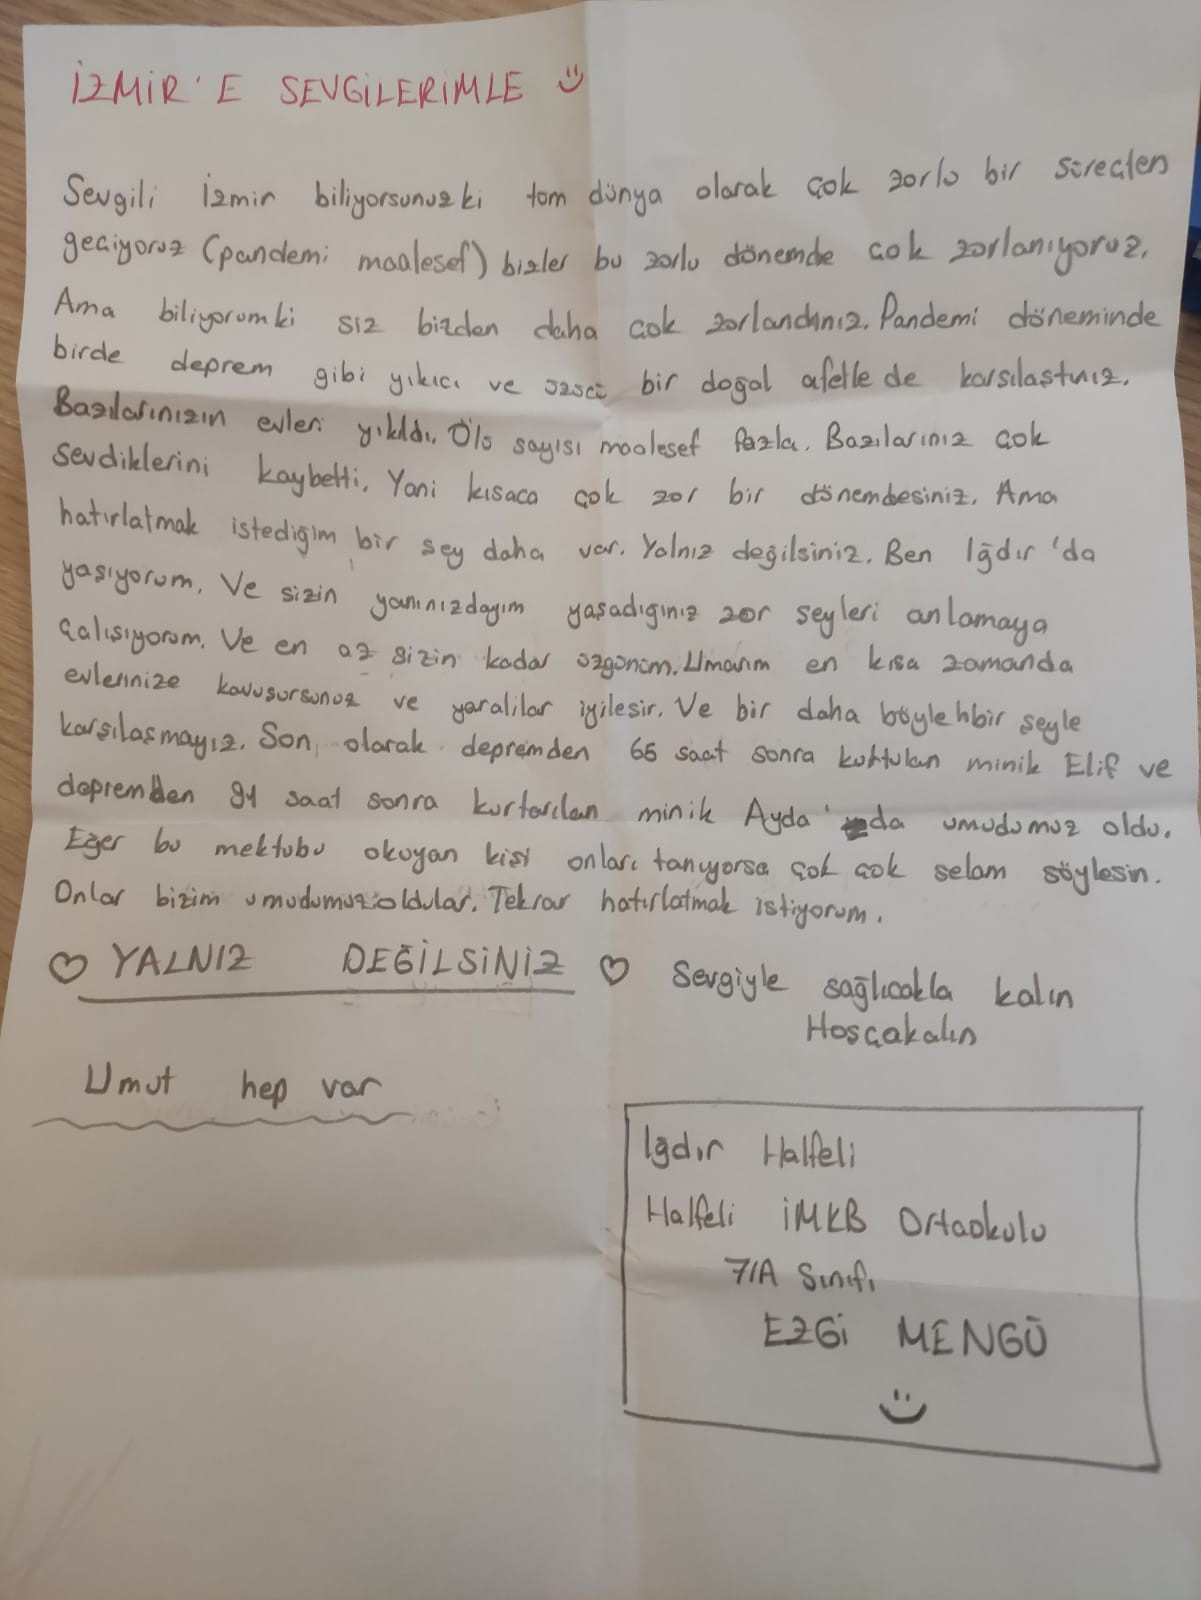 İZMİR'E SEVGİLERİMLE
Sevgili İzmir biliyorsunuzki tüm dünya olarak çok zorlu bir süreçten
geçiyoruz (pandemi maalesef) bizler bu zorlu dönemde çok zorlanıyoruz.
Ama biliyorumki siz bizden daha çok zorlandınız. Pandemi döneminde
birde deprem gibi yıkıcı ve üzücü bir doğal afetle de karşılaştınız.
Bazılarınızın evleri yıkıldı. Ölü sayısı maalesef fazla. Bazılarınız çok
sevdiklerini kaybetti. Yani kısaca çok zor bir dönemdesiniz. Ama
hatırlatmak istediğim bir şey daha var. Yalnız değilsiniz. Ben Iğdır 'da
yaşıyorum. Ve sizin yanınızdayım yaşadığınız zor şeyleri anlamaya
çalışıyorum. Ve en az sizin kadar üzgünüm. Umarım en kısa zamanda
evlerinize kavuşursunuz ve yaralilar iyileşir. Ve bir daha böyle bir şeyle
karşılaşmayız. Son olarak depremden 65 saat sonra kurtulan minik Elif ve
depremden 91 saat sonra kurtarılan minik Ayda 'da umudumuz oldu.
Eğer bu mektubu okuyan kişi onları tanıyorsa çok çok selam söylesin.
Onlar bizim umudumuz oldular. Tekrar hatırlatmak istiyorum.
♡ YALNIZ DEĞİLSİNİZ ♡ Sevgiyle sağlıcakla kalın
Hoşçakalın
Umut hep var
Iğdır Halfeli
Halfeli İMKB Ortaokulu
7/A Sınıfı
EZGİ MENGÜ